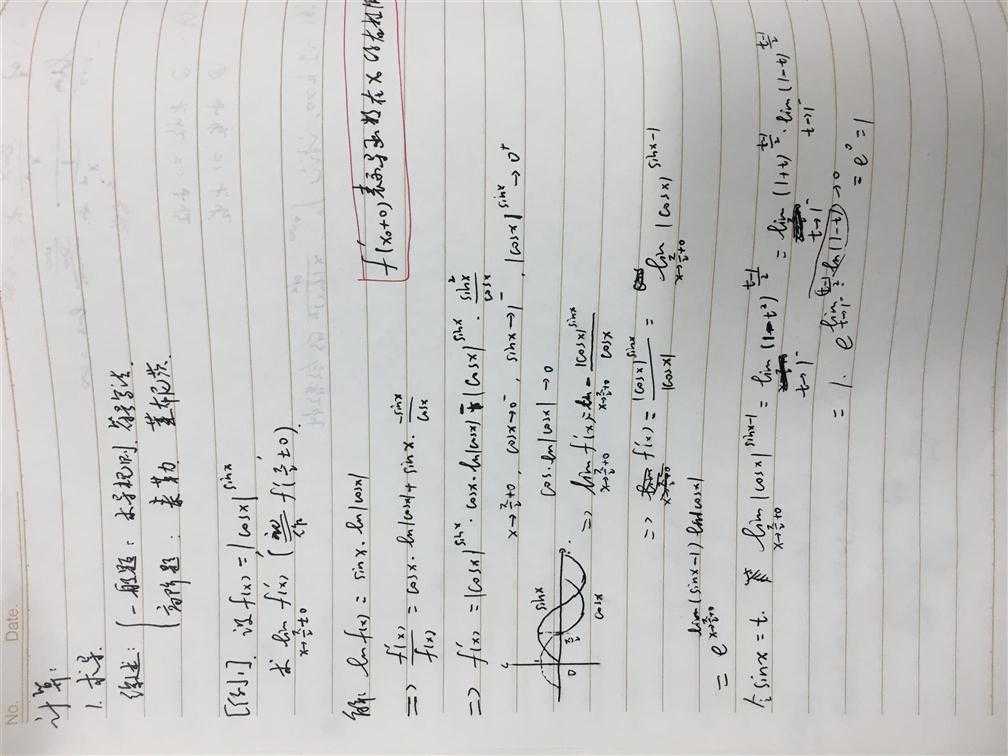 No.
Date.
计算:
1. 求导.
综述: { 一般题: 求导规则 对数求导法
高阶题: 泰勒 莱布尼茨.
[例1] 设 f(x) = |cosx|^sinx
求 lim x→π/2±0 f'(x) ( 记 f'(π/2±0) )
f'(x₀+0) 表示导函数在 x₀ 的右极限
解: ln f(x) = sinx · ln|cosx|
=> f'(x)/f(x) = cosx · ln|cosx| + sinx · -sinx/cosx
=> f'(x) = |cosx|^sinx · cosx · ln|cosx| - |cosx|^sinx · sin²x/cosx
x→π/2+0, cosx→0⁻, sinx→1⁻, |cosx|^sinx → 0⁺
cos · ln|cosx| → 0
sinx
0
π/2
cosx
=> lim x→π/2+0 f'(x) = lim x→π/2+0 - |cosx|^sinx/cosx
=> f'(x) = |cosx|^sinx/|cosx| = lim x→π/2+0 |cosx|^sinx-1
= e^lim x→π/2+0 (sinx-1) ln|cosx|
令 sinx = t. lim x→π/2+0 |cosx|^sinx-1 = lim t→1⁻ (1-t²)^(t-1)/2 = lim t→1⁻ (1+t)^(t-1)/2 · lim t→1⁻ (1-t)^(t-1)/2
= 1 · e^lim t→1⁻ (t-1)/2 · ln(1-t) →0
= e⁰ = 1